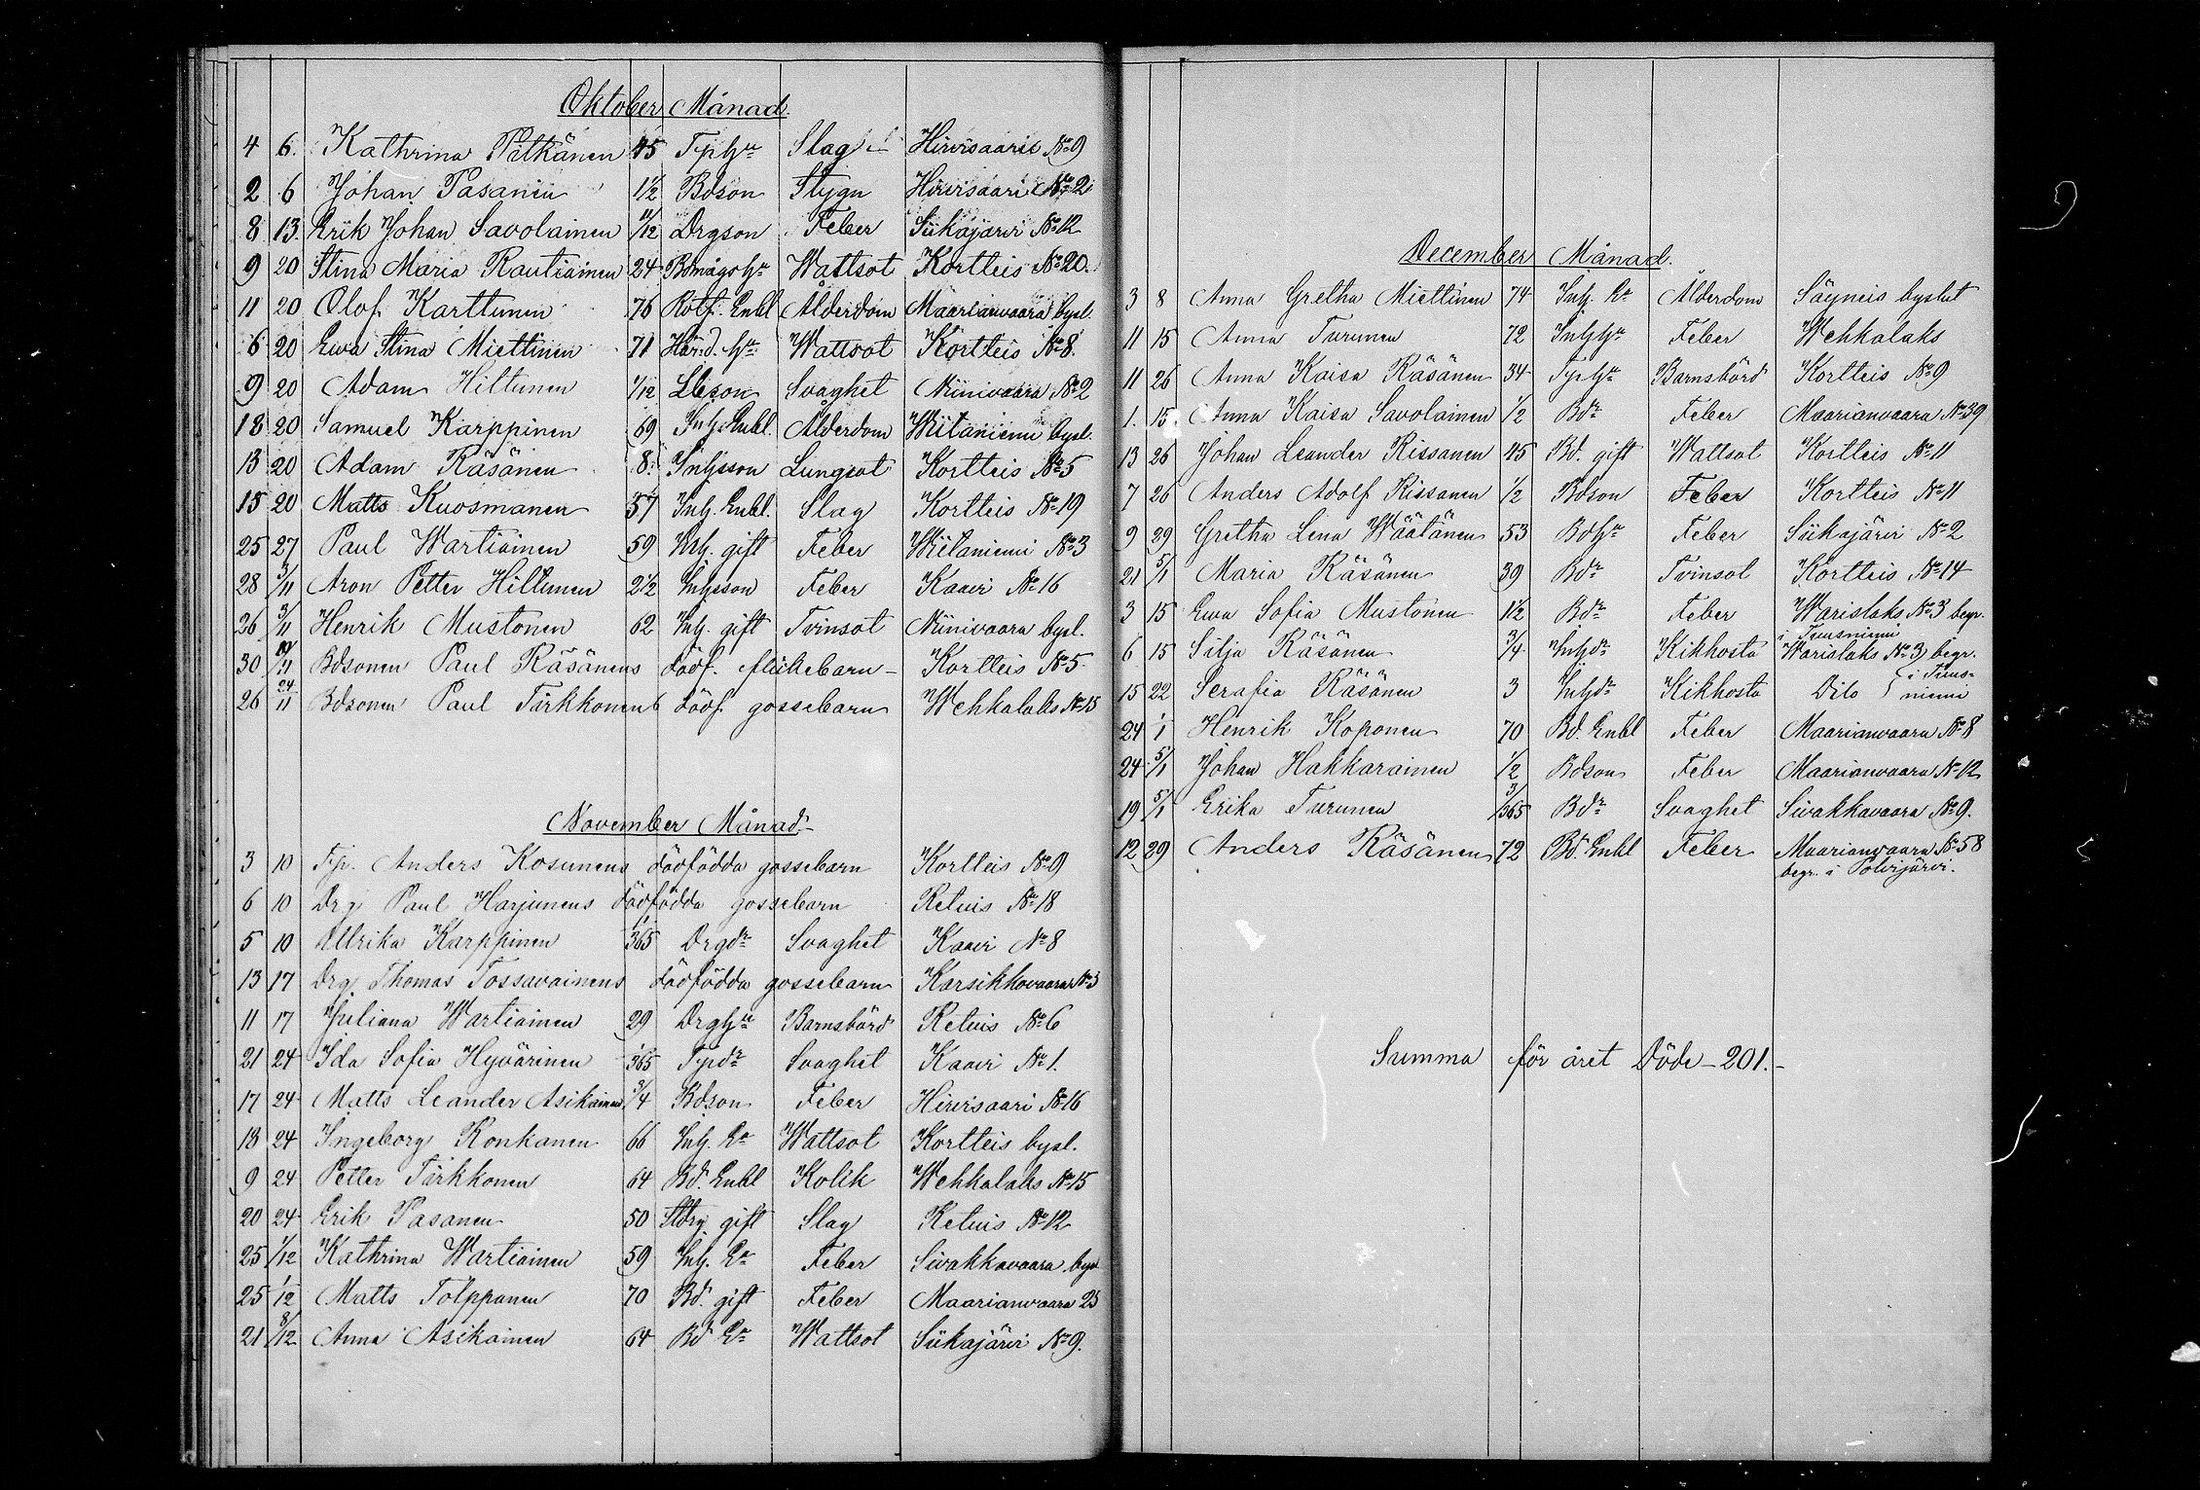 Oktober Månad.
4 6. Kathrina Pitkänen 45 Tphu Slag Hirvisaari No 9
2 6 Johan Pasanen 1 1/2 Bdson Stygn Hirvisaari No 2
8 13. Erik Johan Savolainen 11/12 Drgson Feber Siikajärvi No 12
9 20 Stina Maria Rautiainen 24 Bdmågshu Wattsot Kortteis No 20.
11 20 Olof Karttunen 76 Rotf. Enkl Ålderdom Maarianvaara bysl.
6 20 Ewa Stina Miettinen 71 Hu Wattsot Kortteis No 8.
9 20 Adam Hiltunen 1/12 Lbson Svaghet Niinivaara No 2
18 20 Samuel Karppinen 69 Inh. Enkl. Ålderdom Wiitaniemi bysl.
13 20 Adam Räsänen 8. Inhsson Lungsot Kortteis No 5
15 20 Matts Kuosmanen 57 Inh. Enkl. Slag Kortteis No 19
25 27 Paul Wartiainen 59 Inh. gift Feber Wiitaniemi No 3
28 3/11 Aron Petter Hiltunen 2 1/2 Inhsson Feber Kaavi No 16
26 3/11 Henrik Mustonen 62 Inh. gift Tvinsot Niinivaara bysl.
30 11 Bdsonen Paul Räsänens dödf. flickebarn - Kortteis No 5.
26 24/11 Bdsonen Paul Tirkkonens dödf. gossebarn Wehkalaks No 15
November Månad.-
3 10 Tp. Anders Kosunens dödfödda gossebarn Kortteis No 9
6 10 Drg Paul Harjunens dödfödda gossebarn Retuis No 18
5 10 Ullrika Karppinen 1/365 Drgdr Svaghet Kaavi No 8
13 17 Drg Thomas Tossavainens dödfödda gossebarn Karsikkovaara No 3
11 17 Juliana Wartiainen 29 Drghu Barnsbörd Retuis No 6
21 24 Ida Sofia Hyvärinen 1/365 Tpdr Svaghet Kaavi No 1.
17 24 Matts Leander Asikainen 3/4 Bdson Feber Hirvisaari No 16
13 24 Ingeborg Ronkanen 66 Inh. Ea Wattsot Kortteis bysl.
9 24 Petter Tirkkonen 64 Bd. Enkl Kolik Wehkalaks No 15
20 24 Erik Pasanen 50 Stdrg gift Slag Retuis No 12
25 1/12 Kathrina Wartiainen 59 Inh. Ea Feber Sivakkavaara bysl
25 1/12 Matts Tolppanen 70 Bd. gift Feber Maarianvaara 25
21 8/12 Anna Asikainen 64 Bd Ea Wattsot Siikajärvi No 9.
December Månad.
3 8 Anna Gretha Miettinen 74 Inh. Ea Ålderdom Säyneis byslut
11 15 Anna Turunen 72 Inhhu Feber Wehkalaks
11 26 Anna Kaisa Räsänen 34 Tphu Barnsbörd Kortteis No 9
1. 15 Anna Kaisa Savolainen 1/2 Bdr Feber Maarianvaara No 39
13 26 Johan Leander Rissanen 45 Bd. gift Wattsot Kortteis No 11
7 26 Anders Adolf Rissanen 1/2 Bdson Feber Kortteis No 11
9 29 Gretha Lena Wäätänen 53 Bdhu Feber Siikajärvi No 2
21 5/1 Maria Räsänen 39 Bdr Tvinsot Kortteis No 14
3 15 Ewa Sofia Mustonen 1 1/2 Bdr Feber Warislaks No 3 begr.
i Tuusniemi
6 15 Silja Räsänen 3/4 Inhdr Kikhosta Warislaks No 3 begr.
i Tuus-
15 22 Serafia Räsänen 3 Inhdr Kikhosta Dito niemi
24 1/1 Henrik Koponen 70 Bd. Enkl Feber Maarianvaara No 8
24 5/1 Johan Hakkarainen 1/2 Bdson Feber Maarianvaara No 12
19 5/1 Erika Turunen 3/365 Bdr Svaghet Sivakkavaara No 9.
12 29 Anders Räsänen 72 Bd. Enkl Feber Maarianvaara No 58
begr. i Polvijärvi.
Summa för året Döde - 201.-